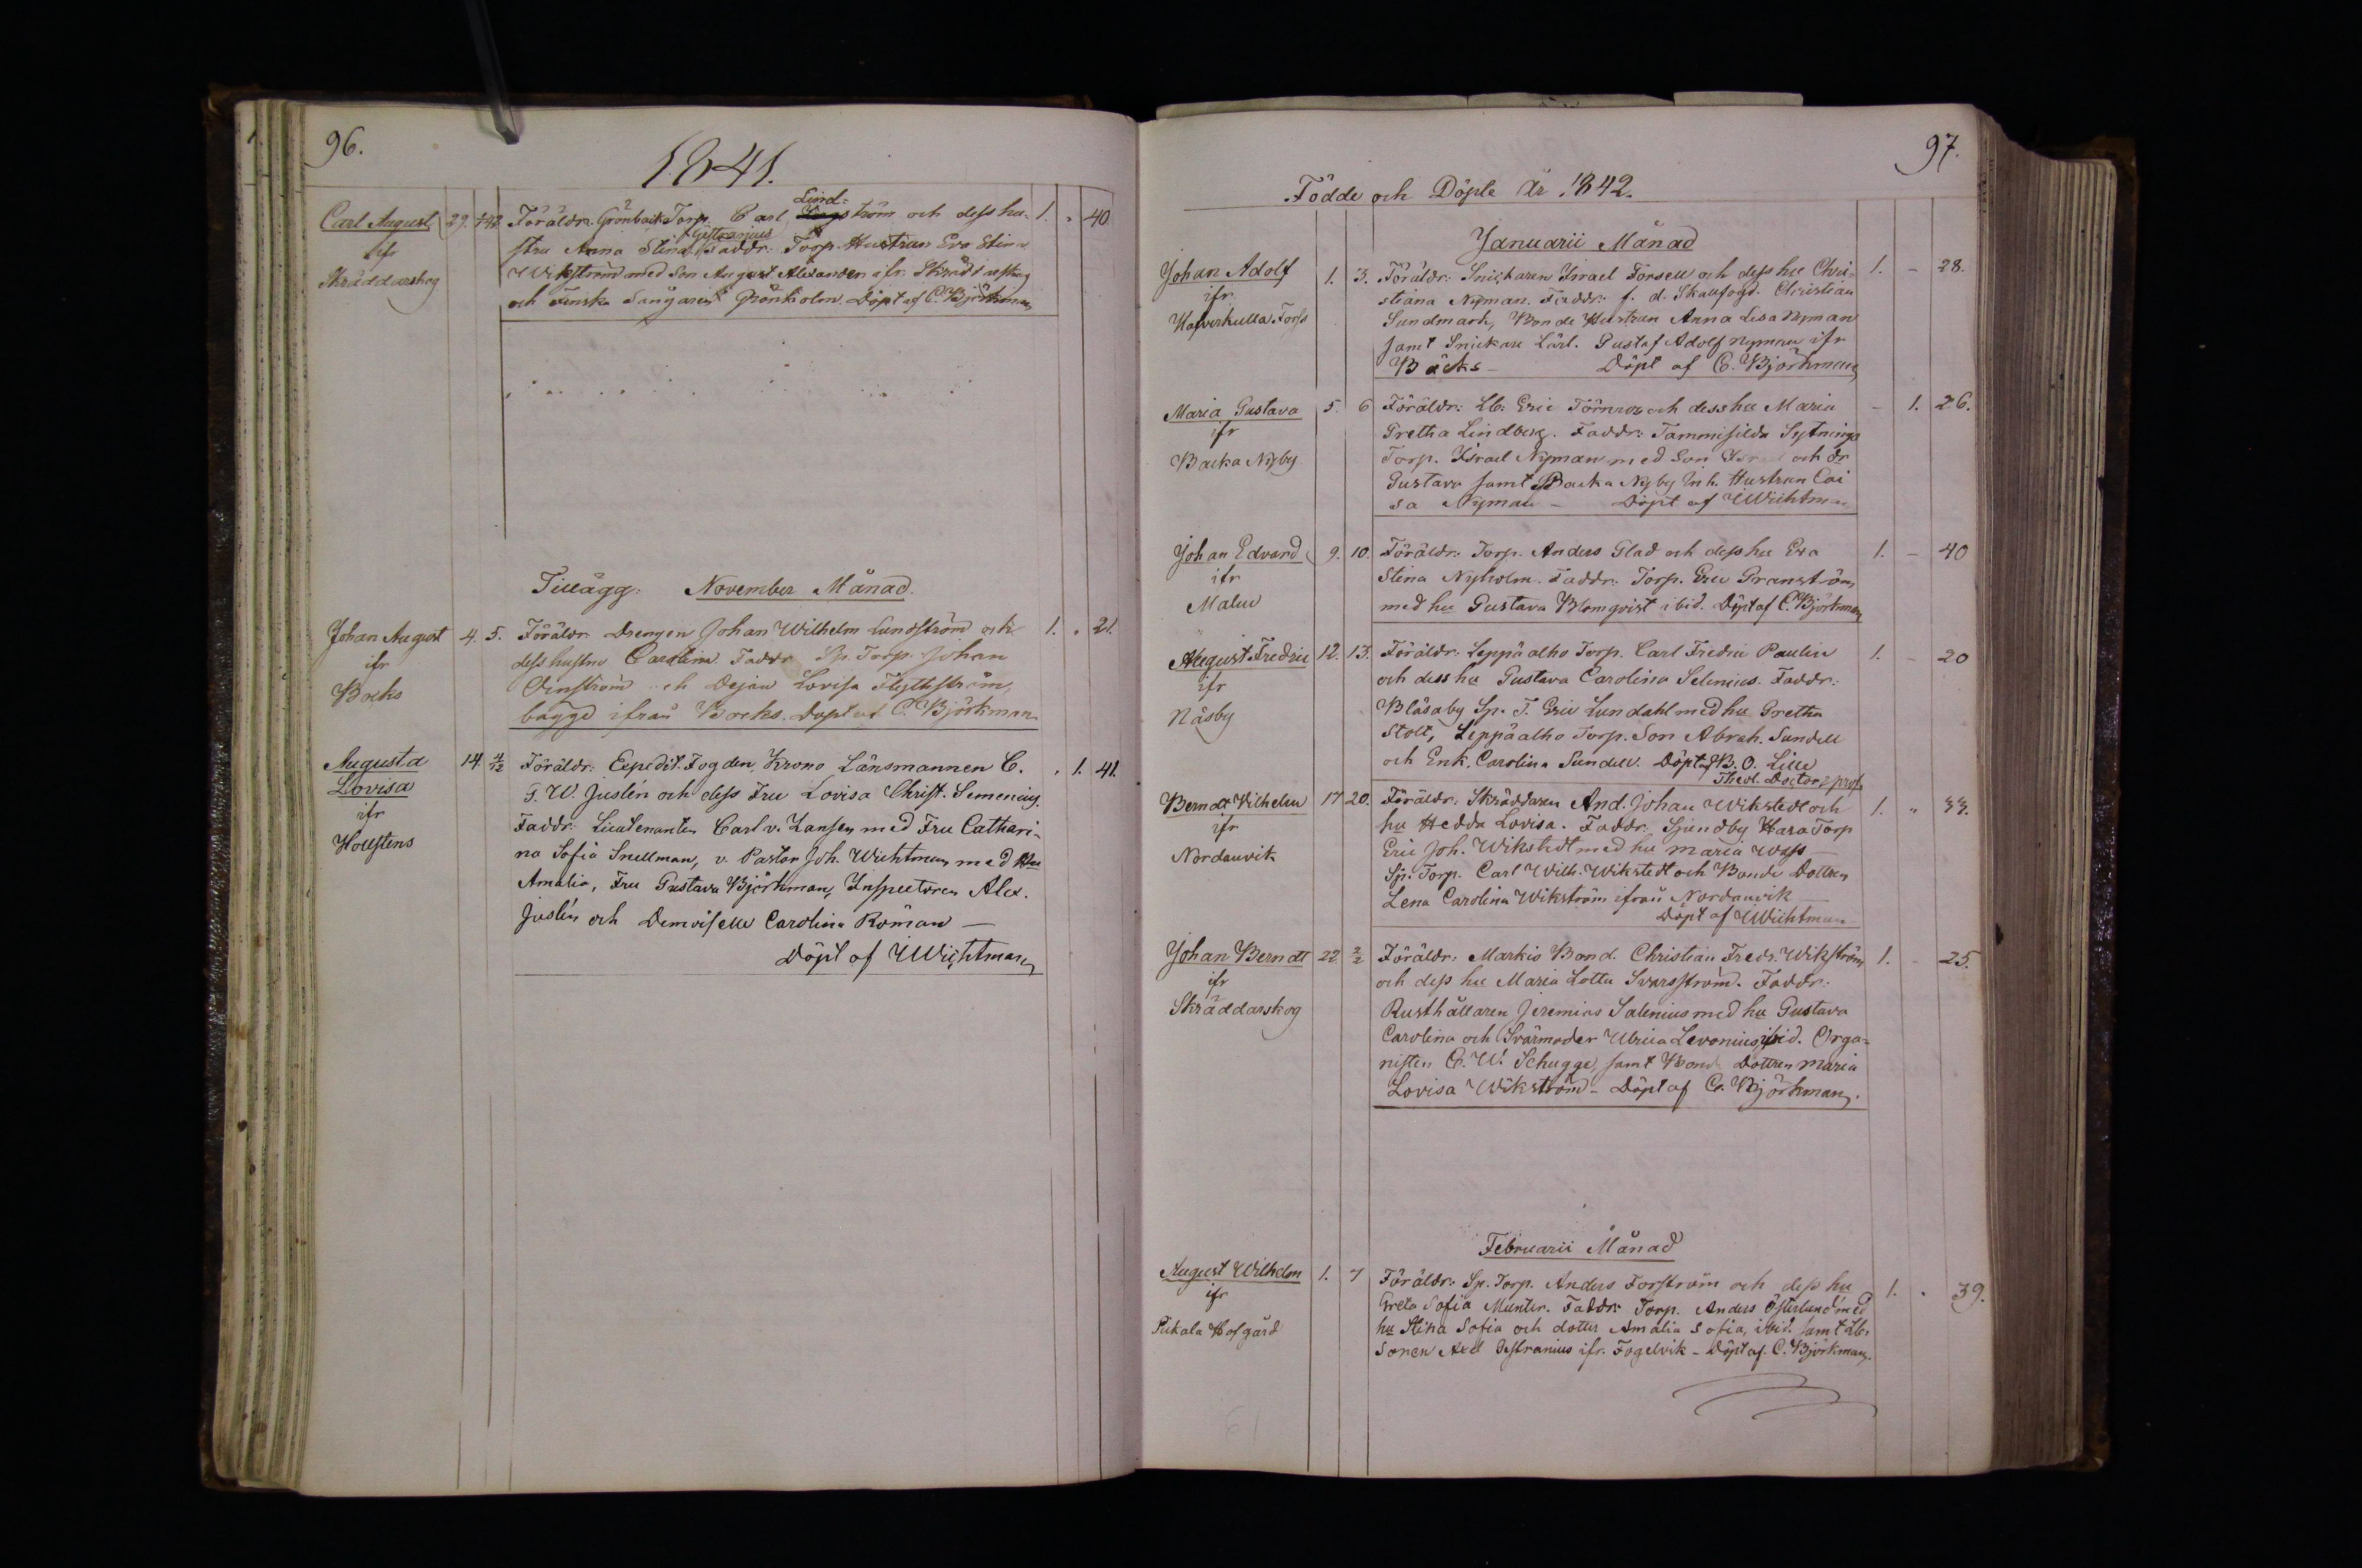 96.
1841.
Carl August 29. Föräldr. Grönback Torp. Carl Lind=ström och dess hu- 1. " 40.
ifr stru Anna Stina Gestranius Faddr. Torp. Hustrun Eva Stina
Skräddarskog Wikström med Son August Alexander ifr. Skräddarskog
och Finska Grönholm. Döpt af C. Björkman
Tillägg: November Månad.
Johan August 4. 5. Föräldr. Drengen Johan Wilhelm Lundström och 1. " 21.
ifr dess hustru Carolina. Faddr. Sp. Torp. Johan
Böcks och Dejan Lovisa
bägge ifrån Böcks. Döpt af C. Björkman
Augusta 14 4/12 Föräldr: Expedit. Fogden, Krono Länsmannen C. " 1. 41.
Lovisa G. W. Juslén och dess Fru Lovisa Christ. Semenius.
ifr Faddr: Lieutenanten Carl v. Zansen med Fru Cathari-
Hollstens na Sofia Snellman, v. Pastor Joh. Wichtman med Hu
Amalia, Fru Gustava Björkman, Inspectoren Alex.
Juslén och Demoiselle Carolina Roman —
Döpt af J Wichtman
97.
Födde och Döpte År 1842.
Januarii Månad
Johan Adolf 1. 3. Föräldr: Snickaren Israel Forsell och dess hu Chri- 1. - 28.
ifr stiana Nyman. Faddr: f. d. Skallfogd. Christian
Sundmark, Bonde Hustrun Anna Lisa Nyman
samt Snickare Lärl. Gustaf Adolf Nyman ifr
Bäcks — Döpt af C. Björkman
Maria Gustava 5. 6 Föräldr: Lb: Eric Törnroo och dess hu Maria - 1. 26.
ifr Gretha Lindberg. Faddr: Sytnings
Backa Nyby Torp. Israel Nyman med Son Israel och dr
Gustava samt Backa Nyby Inh. Hustrun Cai
sa Nyman — Döpt af J Wichtman
Johan Edvard 9. 10. Föräldr: Torp. Anders Glad och dess hu Eva 1. - 40
ifr Stina Nyholm. Faddr: Torp. Eric Granström
Malm med hu Gustava Blomqvist ibid. Döpt af C. Björkman
August Fredric 12. 13. Föräldr: Leppäalho Torp. Carl Fredric Paulin 1. - 20
ifr och dess hu Gustava Carolina Selenius. Faddr:
Näsby Blåsaby Sp. T. Eric Lundahl med hu Gretha
Stolt, Leppäalho Torp. Son Abrah. Sundell
och Enk. Carolina Sundell. Döpt af B. O. Lille
Theol. Doctor & prof.
Berndt Vilhelm 17 20. Föräldr: Skräddaren And. Johan Wikstedt och 1. " 33.
ifr hu Hedda Lovisa. Faddr: Sjundby Hara Torp
Nordanvik Eric Joh. Wikstedt med hu Maria Wass —
Sp. Torp. Carl Wilh. Wikstedt och Bonde Dottren
Lena Carolina Wikström ifrån Nordanvik —
Döpt af J Wichtman
Johan Berndt 22 2/2 Föräldr: Markis Bond. Christian Fredr. Wikström 1. - 25.
ifr och dess hu Maria Lotta Svarsström. Faddr:
Skräddarskog Rusthållaren Jeremias Salenius med hu Gustava
Carolina och Svärmoder Ulrica Levonius, ibid. Orga-
nisten C. W. Schugge, samt Bond. Dottren Maria
Lovisa Wikström — Döpt af C. Björkman.
Februarii Månad
August Wilhelm 1. 7 Föräldr: Sp. Torp. Anders Forström och dess hu 1. " 39.
ifr Greta Sofia Munter. Faddr: Torp. Anders Österlund med
Pikala Hofgård hu Stina Sofia och dotter Amalia Sofia, ibid. samt Lb.
Sonen Axel Gestranius ifr. Fogelvik — Döpt af C. Björkman.
61